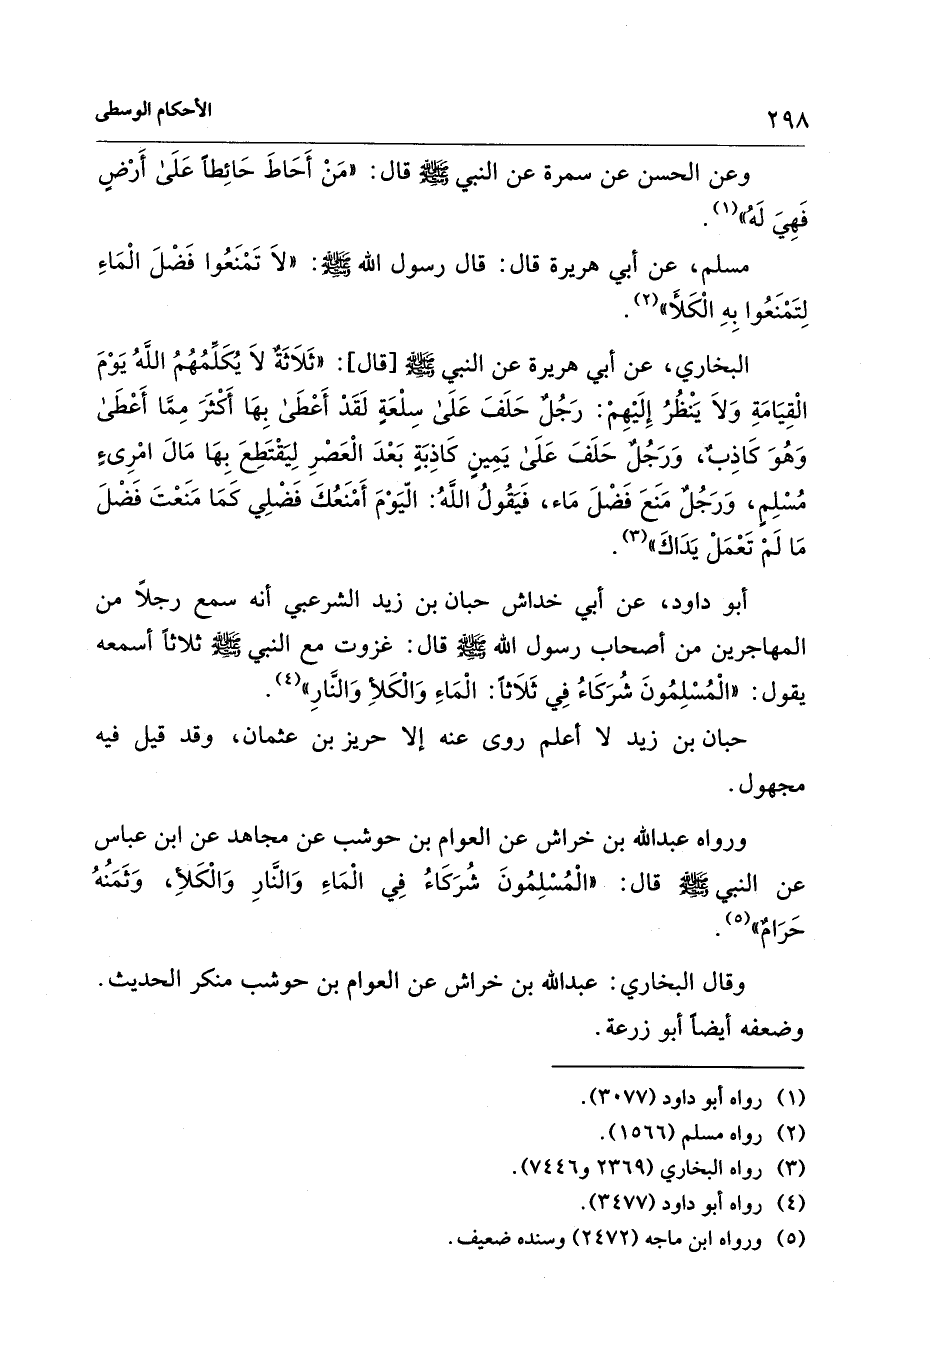 ٢٩٨ الأحكام الوسطى
وعن الحسن عن سمرة عن النبي ﷺ قال: «مَنْ أَحَاطَ حَائِطاً عَلَىٰ أَرْضٍ
فَهِيَ لَهُ»(١).
مسلم، عن أبي هريرة قال: قال رسول الله ﷺ: «لاَ تَمْنَعُوا فَضْلَ الْمَاءِ
لِتَمْنَعُوا بِهِ الْكَلَأَ»(٢).
البخاري، عن أبي هريرة عن النبي ﷺ [قال]: «ثَلَاثَةٌ لاَ يُكَلِّمُهُمُ اللَّهُ يَوْمَ
الْقِيَامَةِ وَلاَ يَنْظُرُ إِلَيْهِمْ: رَجُلٌ حَلَفَ عَلَىٰ سِلْعَةٍ لَقَدْ أَعْطَىٰ بِهَا أَكْثَرَ مِمَّا أَعْطَىٰ
وَهُوَ كَاذِبٌ، وَرَجُلٌ حَلَفَ عَلَىٰ يَمِينٍ كَاذِبَةٍ بَعْدَ الْعَصْرِ لِيَقْتَطِعَ بِهَا مَالَ امْرِىءٍ
مُسْلِمٍ، وَرَجُلٌ مَنَعَ فَضْلَ مَاء، فَيَقُولُ اللَّهُ: الْيَوْمَ أَمْنَعُكَ فَضْلِي كَمَا مَنَعْتَ فَضْلَ
مَا لَمْ تَعْمَلْ يَدَاكَ»(٣).
أبو داود، عن أبي خداش حبان بن زيد الشرعبي أنه سمع رجلاً من
المهاجرين من أصحاب رسول الله ﷺ قال: غزوت مع النبي ﷺ ثلاثاً أسمعه
يقول: «الْمُسْلِمُونَ شُرَكَاءُ فِي ثَلَاثاً: الْمَاءِ وَالْكَلأِ وَالنَّارِ»(٤).
حبان بن زيد لا أعلم روى عنه إلا حريز بن عثمان، وقد قيل فيه
مجهول.
ورواه عبدالله بن خراش عن العوام بن حوشب عن مجاهد عن ابن عباس
عن النبي ﷺ قال: «الْمُسْلِمُونَ شُرَكَاءُ فِي الْمَاءِ وَالنَّارِ وَالْكَلأِ، وَثَمَنُهُ
حَرَامٌ»(٥).
وقال البخاري: عبدالله بن خراش عن العوام بن حوشب منكر الحديث.
وضعفه أيضاً أبو زرعة.
(١) رواه أبو داود (٣٠٧٧).
(٢) رواه مسلم (١٥٦٦).
(٣) رواه البخاري (٢٣٦٩ و٧٤٤٦).
(٤) رواه أبو داود (٣٤٧٧).
(٥) ورواه ابن ماجه (٢٤٧٢) وسنده ضعيف.